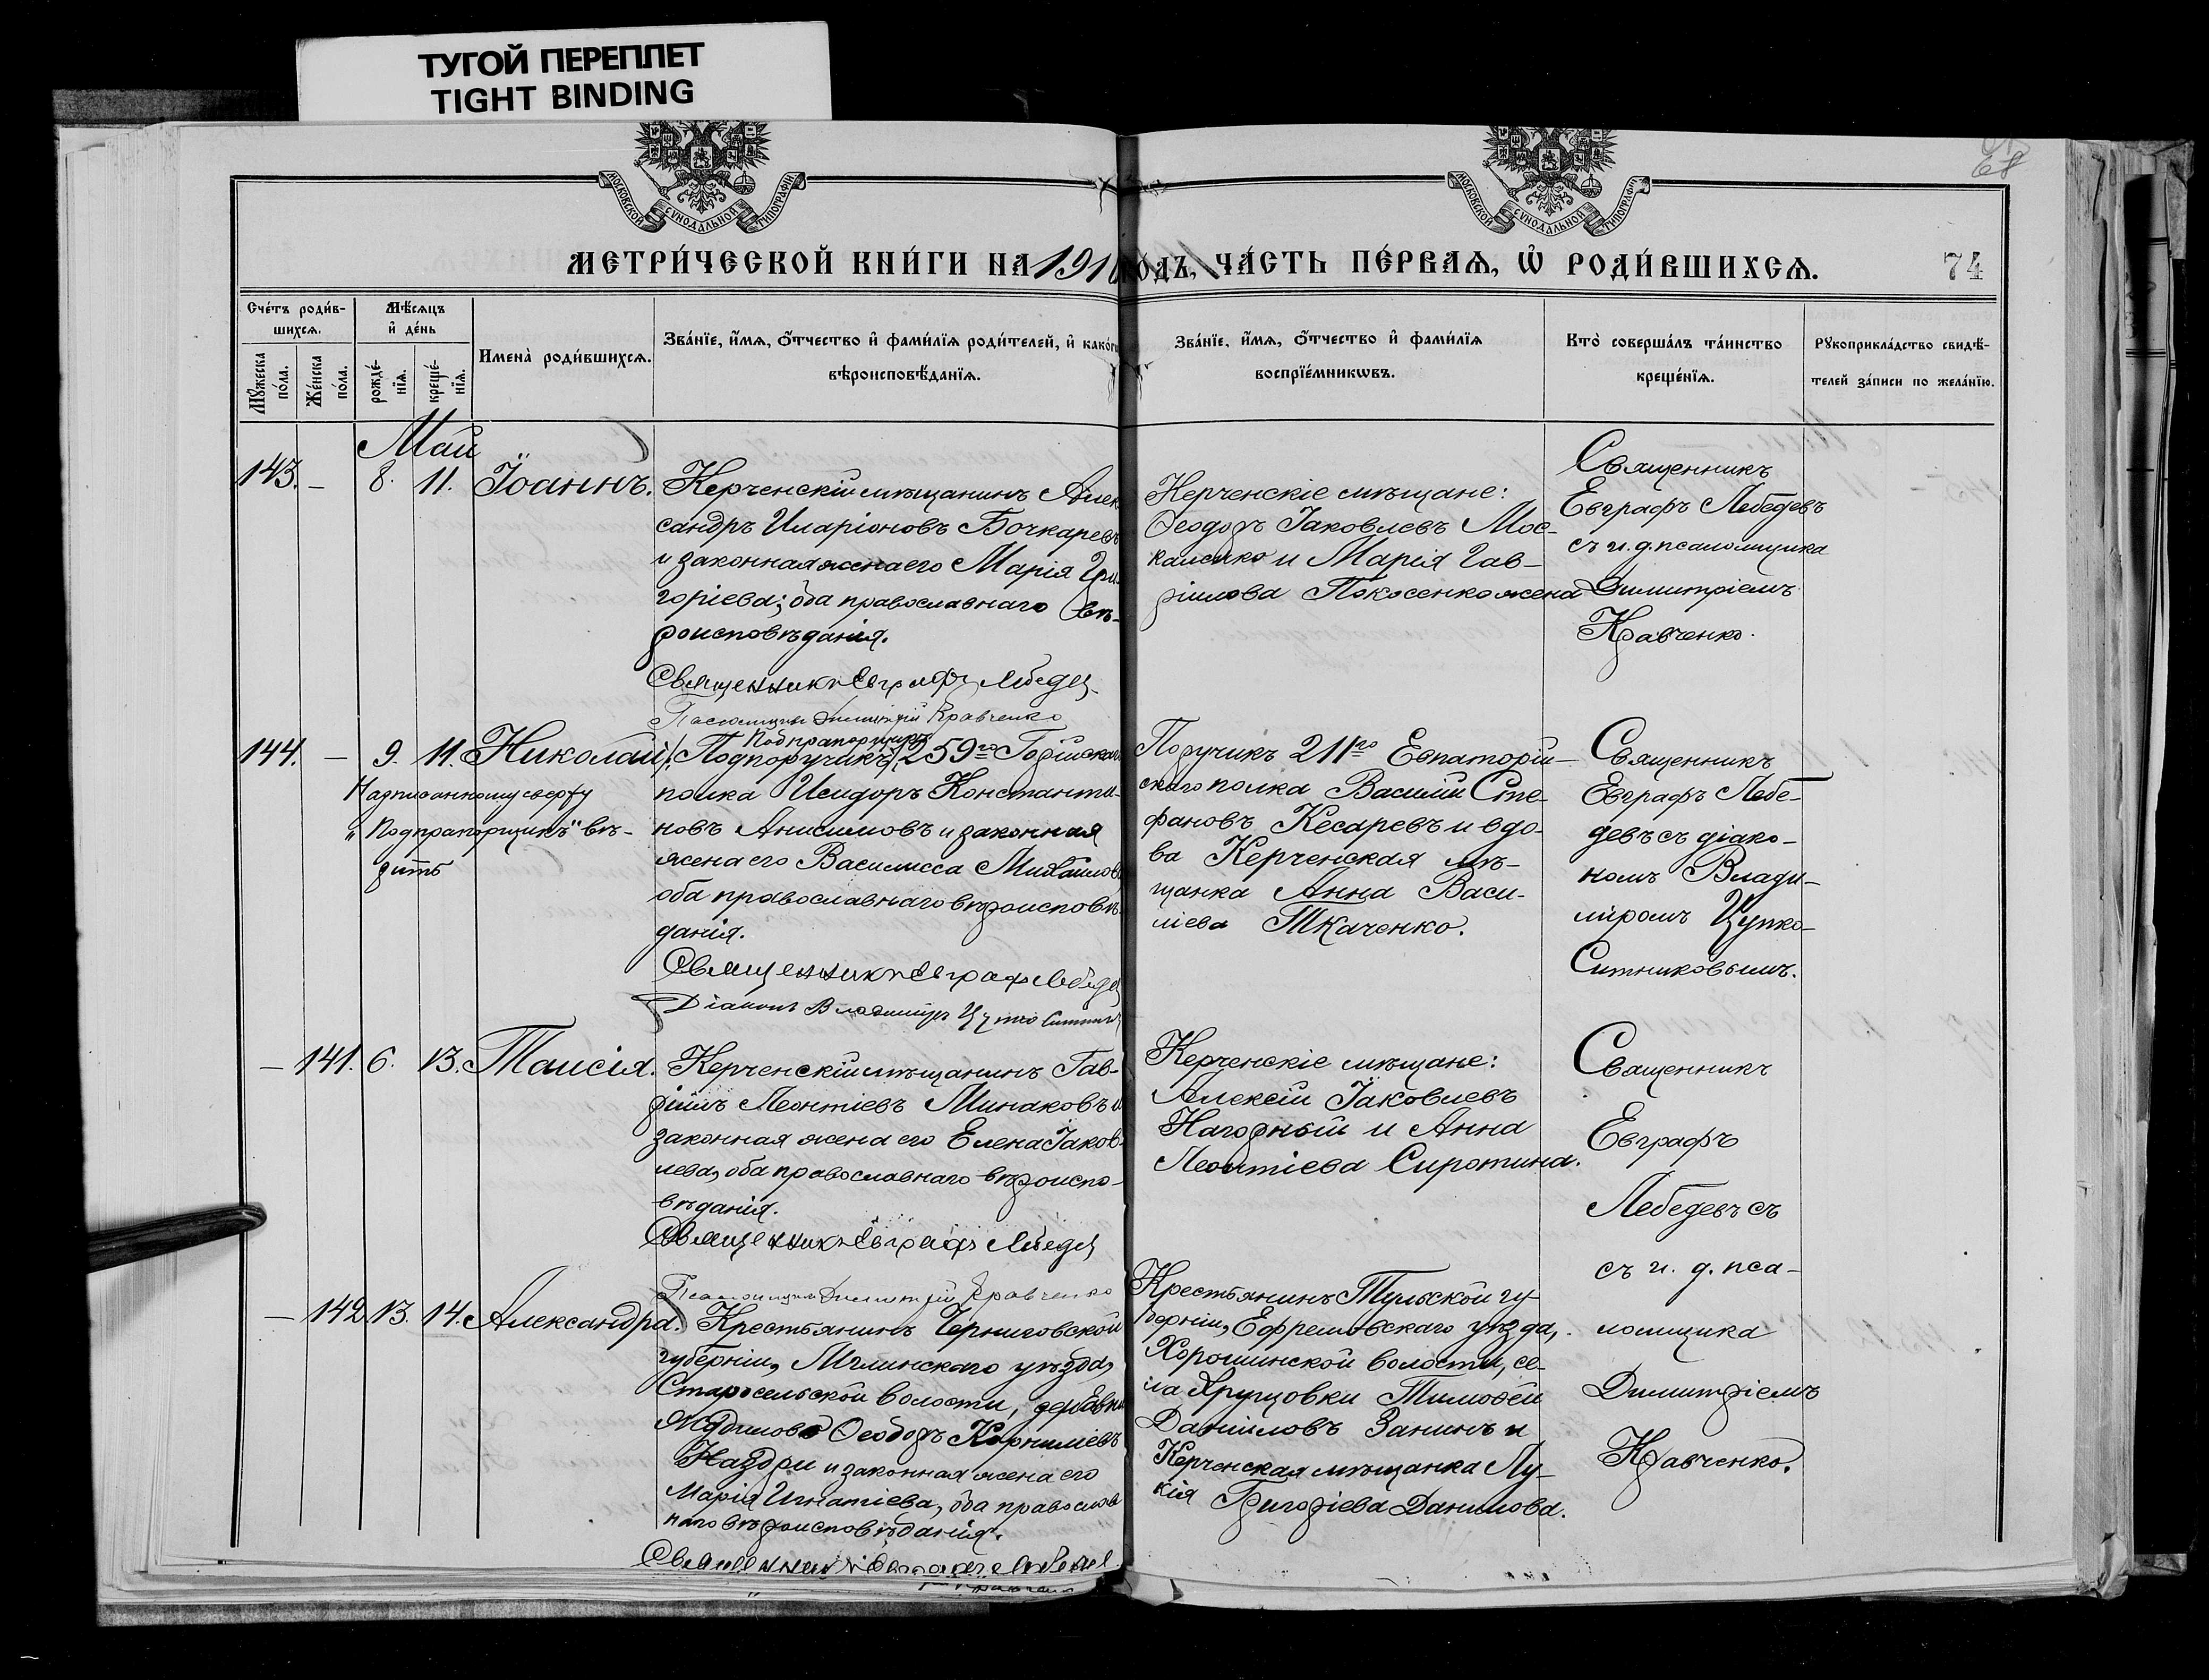 ТУГОЙ ПЕРЕПЛЕТ
TIGHT BINDING
МОСКОВСКОЙ СѴНОДАЛЬНОЙ ТИПОГРАФІИ
МОСКОВСКОЙ СѴНОДАЛЬНОЙ ТИПОГРАФІИ
68
МЕТРИ́ЧЕСКОЙ КНИ́ГИ НА 191 ГОДЪ, ЧА́СТЬ ПЕ́РВАѦ, Ѡ РОДИ́ВШИХСѦ.
74
Сче́тъ роди́в-
шихсѧ.
Мꙋ́жеска по́ла.
Же́нска по́ла.
Мѣ́сѧцъ
и҆ де́нь
рожде́-
нїѧ.
креще́-
нїѧ.
Имена̀ роди́вшихсѧ.
Зва́нїе, и҆́мѧ, ѻ҆́тчество и҆ фами́лїѧ роди́телей, и҆ како́гѡ
вѣроисповѣ́данїѧ.
Зва́нїе, и҆́мѧ, ѻ҆́тчество и҆ фами́лїѧ
воспрїе́мникѡвъ.
Кто̀ соверша́лъ та́инство
креще́нїѧ.
Рꙋкоприкла́дство свидѣ́-
телей за́писи по жела́нїю.
Май
143. – 8. 11. Іоаннъ.
Керченскій мѣщанинъ Алек
сандръ Иларіоновъ Бочкаревъ
и законная жена его Марія Гри-
горіева; оба православнаго вѣ-
роисповѣданія.
Священникъ Евграфъ Лебедев
Псаломщикъ Димитрій Кравченко
Керченскіе мѣщане:
Ѳеодоръ Іаковлевъ Мос-
каленко и Марія Гав-
ріилова Покосенко жена
Священникъ
Евграфъ Лебедевъ
съ и. д. псаломщика
Димитріемъ
Кравченко.
144. – 9. 11. Николай.
Надписанному сверху
„Подпрапорщикъ" вѣ-
рить
Подпрапорщикъ
Подпоручикъ 259го Горійскаго
полка Исидоръ Константи-
новъ Анисимовъ и законная
жена его Василисса Михаилова
оба православнаго вѣроисповѣ-
данія.
Священникъ Евграфъ Лебедев
Діаконъ Владиміръ Цупко Ситник
Поручикъ 211го Евпаторій-
скаго полка Василій Сте-
фановъ Кесаревъ и вдо-
ва Керченская мѣ-
щанка Анна Васи-
ліева Ткаченко.
Священникъ
Евграфъ Лебе-
девъ съ діако-
номъ Влади-
міромъ Цупко-
Ситниковымъ.
– 141. 6. 13. Таисія.
Керченскій мѣщанинъ Гав-
ріилъ Леонтіевъ Минаковъ и
законная жена его Елена Іаков-
лева, оба православнаго вѣроиспо-
вѣданія.
Священникъ Евграфъ Лебедев
Псаломщикъ Димитрій Кравченко
Керченскіе мѣщане:
Алексій Іаковлевъ
Нагорный и Анна
Леонтіева Сиротина.
Священникъ
Евграфъ
Лебедевъ съ
съ и. д. пса-
ломщика
Димитріемъ
Кравченко.
– 142 13. 14. Александра.
Крестьянинъ Черниговской
губерніи, Мглинскаго уѣзда,
Старосельской волости, деревни
Ѳеодоръ Корниліевъ
и законная жена его
Марія Игнатіева, оба православ
наго вѣроисповѣданія.
Священникъ Евграфъ Лебедев
Крестьянинъ Тульской гу-
берніи, Ефремовскаго уѣзда,
Хорошинской волости, се-
ла Тимоѳей
Даніиловъ Занинъ и
Керченская мѣщанка Лу-
кія Григоріева Данилова.